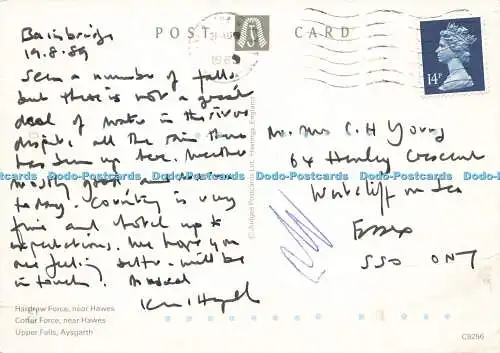 POST CARD
Bainbridge
19.8.89
Seen a number of falls
but there is not a great
deal of water in the river
despite all the rain there
has been up here. Weather
mostly good and
today. Country is very
fine and hotel up to
expectations. We hope you
are feeling better. Will be
in touch.
14P
Mr. Mrs C. H Young
64 Henley Crescent
Westcliff on Sea
Essex
SS0
© Judges Postcards Ltd., Hastings, England
Hardrow Force, near Hawes
Cotter Force, near Hawes
Upper Falls, Aysgarth
C9256
Dodo-Postcards Dodo-Postcards Dodo-Postcards Dodo-Postcards Dodo-Postcards